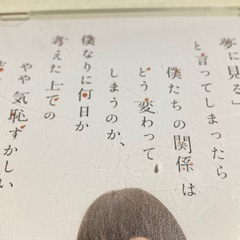 夢に見る」
と言ってしまったら
僕たちの関係は
どう変わって
しまうのか、
僕なりに何日か
考えた上での
やや気恥ずかしい